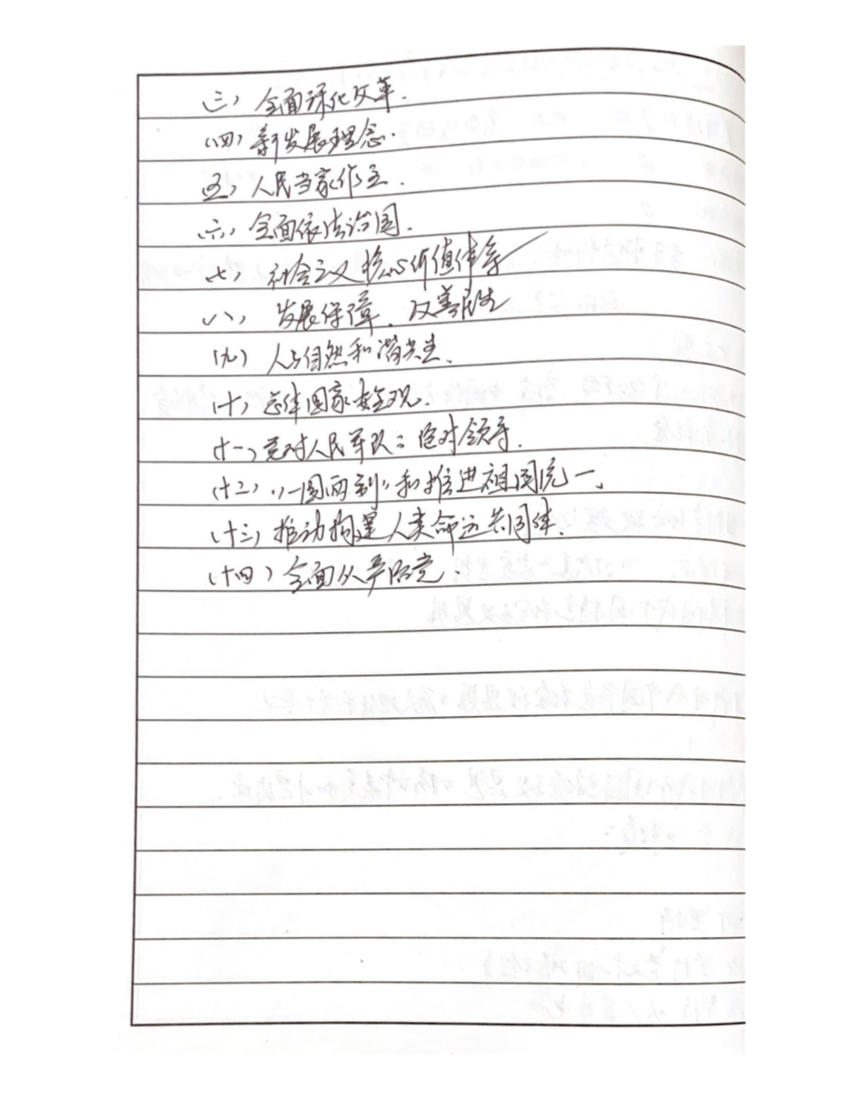 (三) 全面深化改革.
(四) 新发展理念.
五) 人民当家作主.
(六) 全面依法治国.
(七) 社会主义核心价值体系
(八) 发展保障、改善民生
(九) 人与自然和谐共生.
(十) 总体国家安全观.
(十一) 党对人民军队之绝对领导.
(十二) “一国两制”和推进祖国统一、
(十三) 推动构建人类命运共同体.
(十四) 全面从严治党.